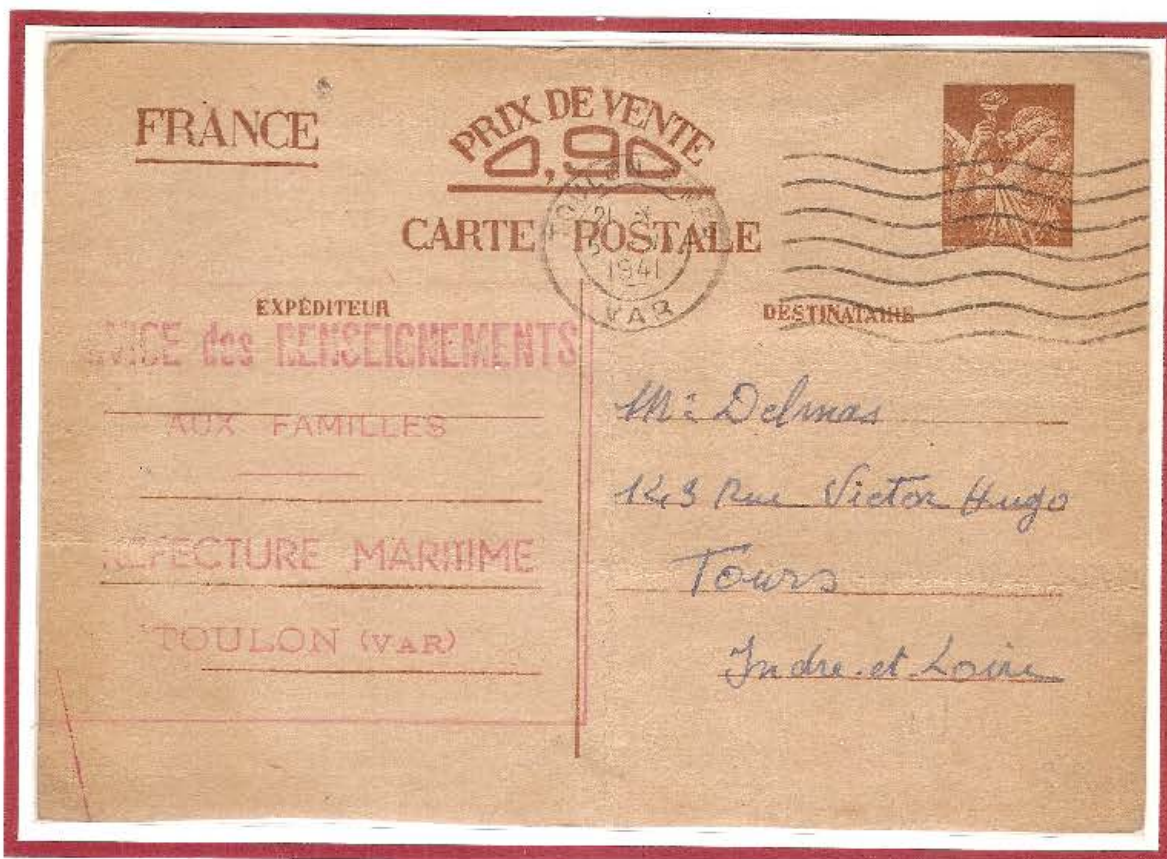 FRANCE
PRIX DE VENTE
0,90
CARTE POSTALE
1941
VAR
EXPÉDITEUR
DESTINATAIRE
des RENSEIGNEMENTS
AUX FAMILLES
MARITIME
TOULON (VAR)
Mr Delmas
143 Rue Victor Hugo
Tours
Indre-et-Loire